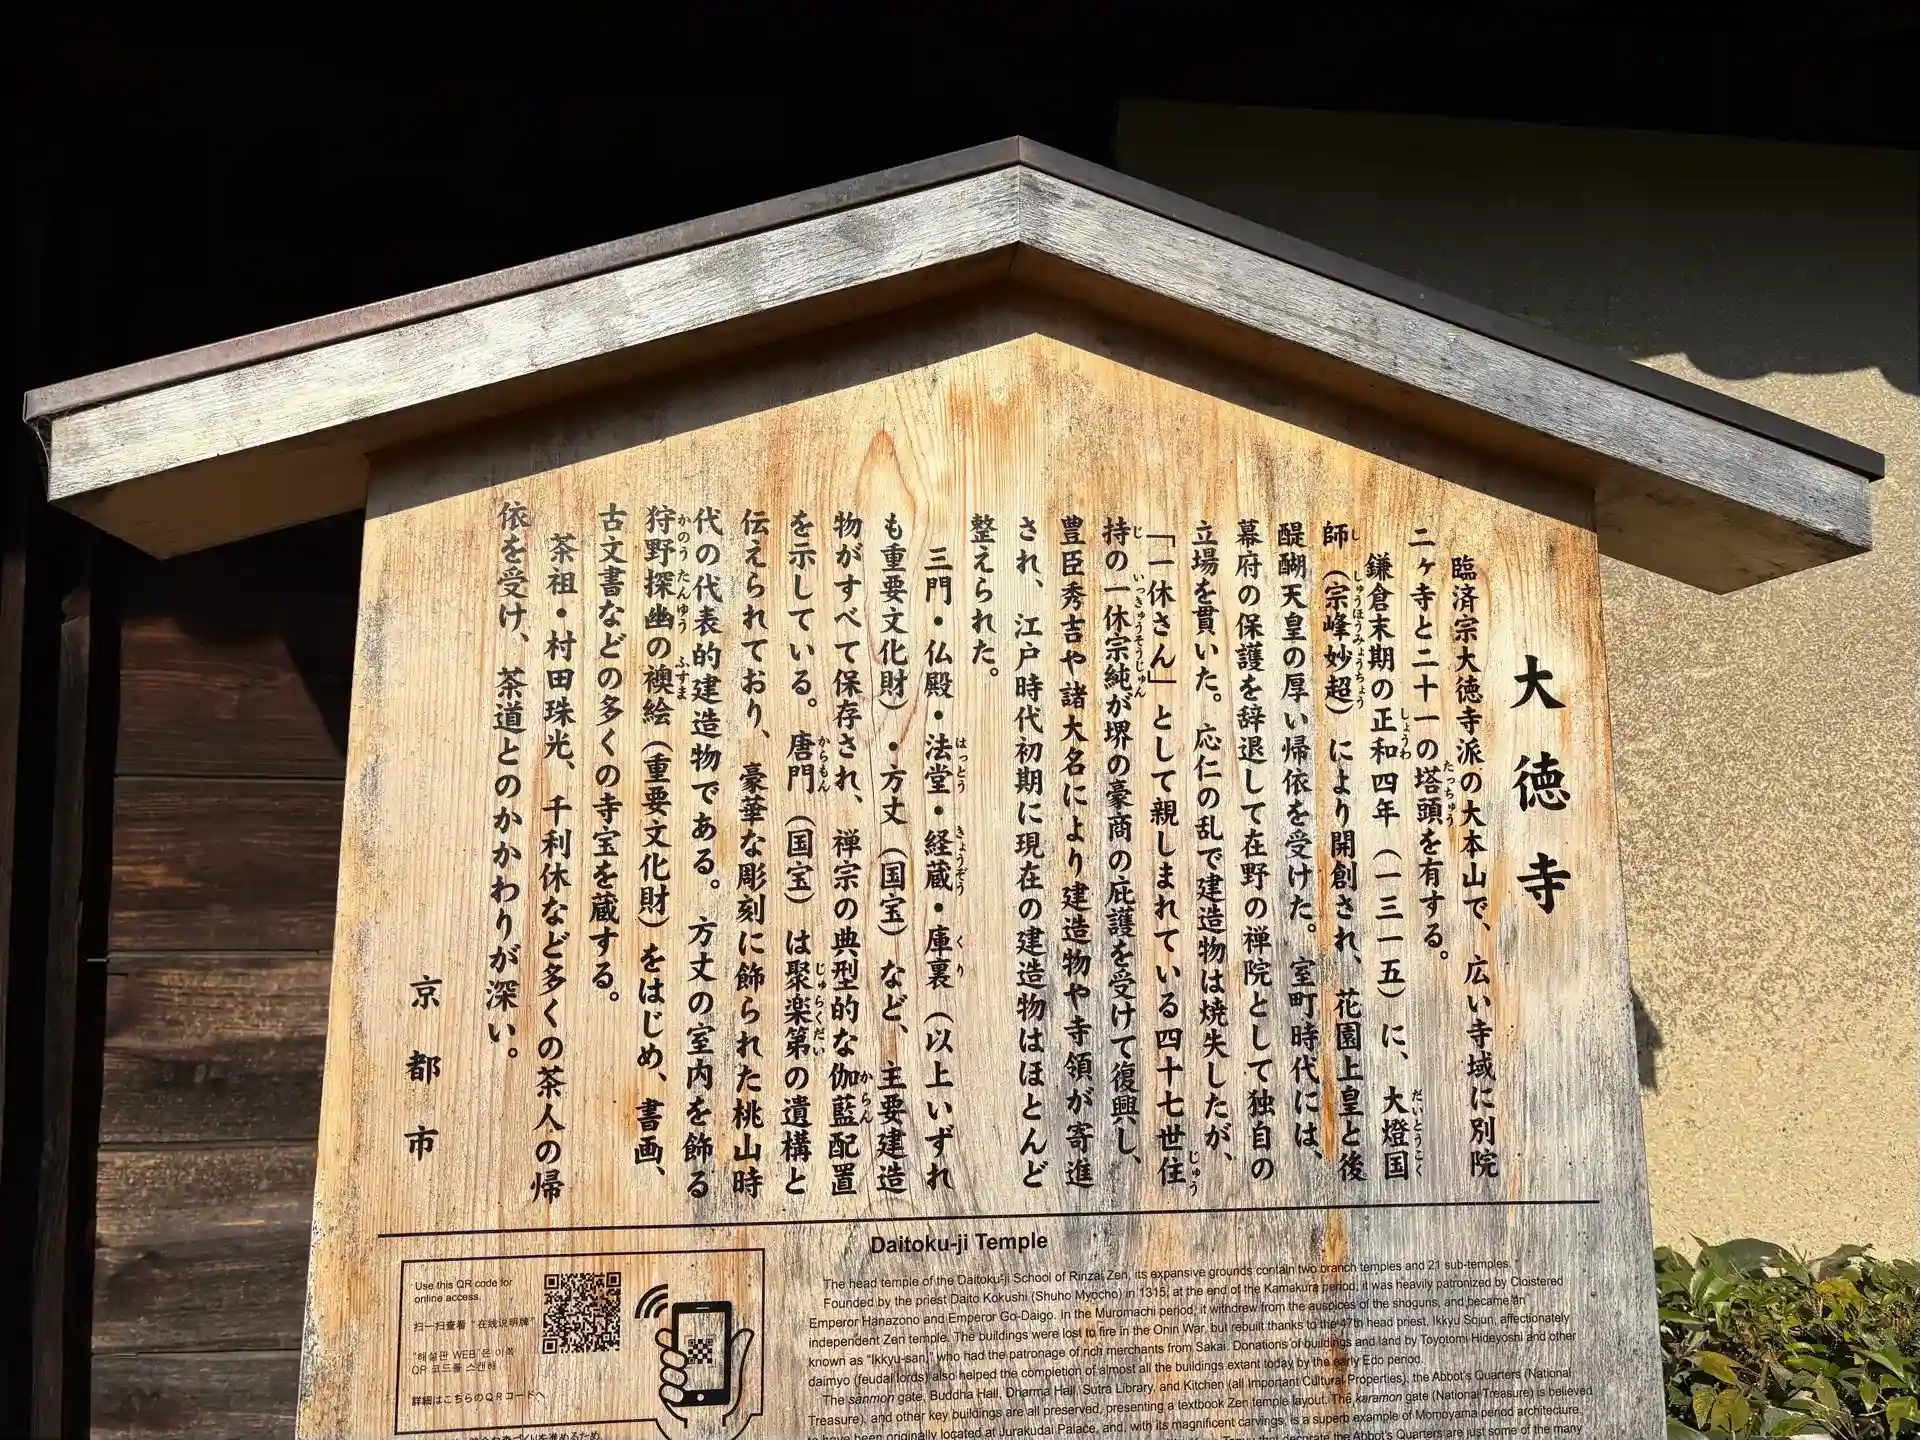 大徳寺
臨済宗大徳寺派の大本山で、広い寺域に別院
二ヶ寺と二十一の塔頭を有する。
鎌倉末期の正和四年（一三一五）に、大燈国
師（宗峰妙超）により開創され、花園上皇と後
醍醐天皇の厚い帰依を受けた。室町時代には、
幕府の保護を辞退して在野の禅院として独自の
立場を貫いた。応仁の乱で建造物は焼失したが、
「一休さん」として親しまれている四十七世住
持の一休宗純が堺の豪商の庇護を受けて復興し、
豊臣秀吉や諸大名により建造物や寺領が寄進
され、江戸時代初期に現在の建造物はほとんど
整えられた。
三門・仏殿・法堂・経蔵・庫裏（以上いずれ
も重要文化財）・方丈（国宝）など、主要建造
物がすべて保存され、禅宗の典型的な伽藍配置
を示している。唐門（国宝）は聚楽第の遺構と
伝えられており、豪華な彫刻に飾られた桃山時
代の代表的建造物である。方丈の室内を飾る
狩野探幽の襖絵（重要文化財）をはじめ、書画、
古文書などの多くの寺宝を蔵する。
茶祖・村田珠光、千利休など多くの茶人の帰
依を受け、茶道とのかかわりが深い。
京都市
たっちゅう
しょうわ
だいとうこく
し
しゅうほうみょうちょう
じゅう
じ
いっきゅうそうじゅん
はっとう
きょうぞう
くり
からん
からもん
じゅらくだい
かのうたんゆう
ふすま
Daitoku-ji Temple
The head temple of the Daitoku-ji School of Rinzai Zen, its expansive grounds contain two branch temples and 21 sub-temples.
Founded by the priest Daito Kokushi (Shuho Myocho) in 1315, at the end of the Kamakura period, it was heavily patronized by Cloistered
Emperor Hanazono and Emperor Go-Daigo. In the Muromachi period, it withdrew from the auspices of the shoguns, and became an
independent Zen temple. The buildings were lost to fire in the Onin War, but rebuilt thanks to the 47th head priest, Ikkyu Sojun, affectionately
known as "Ikkyu-san," who had the patronage of rich merchants from Sakai. Donations of buildings and land by Toyotomi Hideyoshi and other
daimyo (feudal lords) also helped the completion of almost all the buildings extant today by the early Edo period.
The sanmon gate, Buddha Hall, Dharma Hall, Sutra Library, and Kitchen (all Important Cultural Properties), the Abbot's Quarters (National
Treasure), and other key buildings are all preserved, presenting a textbook Zen temple layout. The karamon gate (National Treasure) is believed
to have been originally located at Jurakudai Palace, and, with its magnificent carvings, is a superb example of Momoyama period architecture.
that decorate the Abbot's Quarters are just some of the many
Use this QR code for
online access.
扫一扫查看"在线说明牌"
"해설판 WEB"은 이쪽
QR 코드를 스캔해
詳細はこちらのQRコードへ